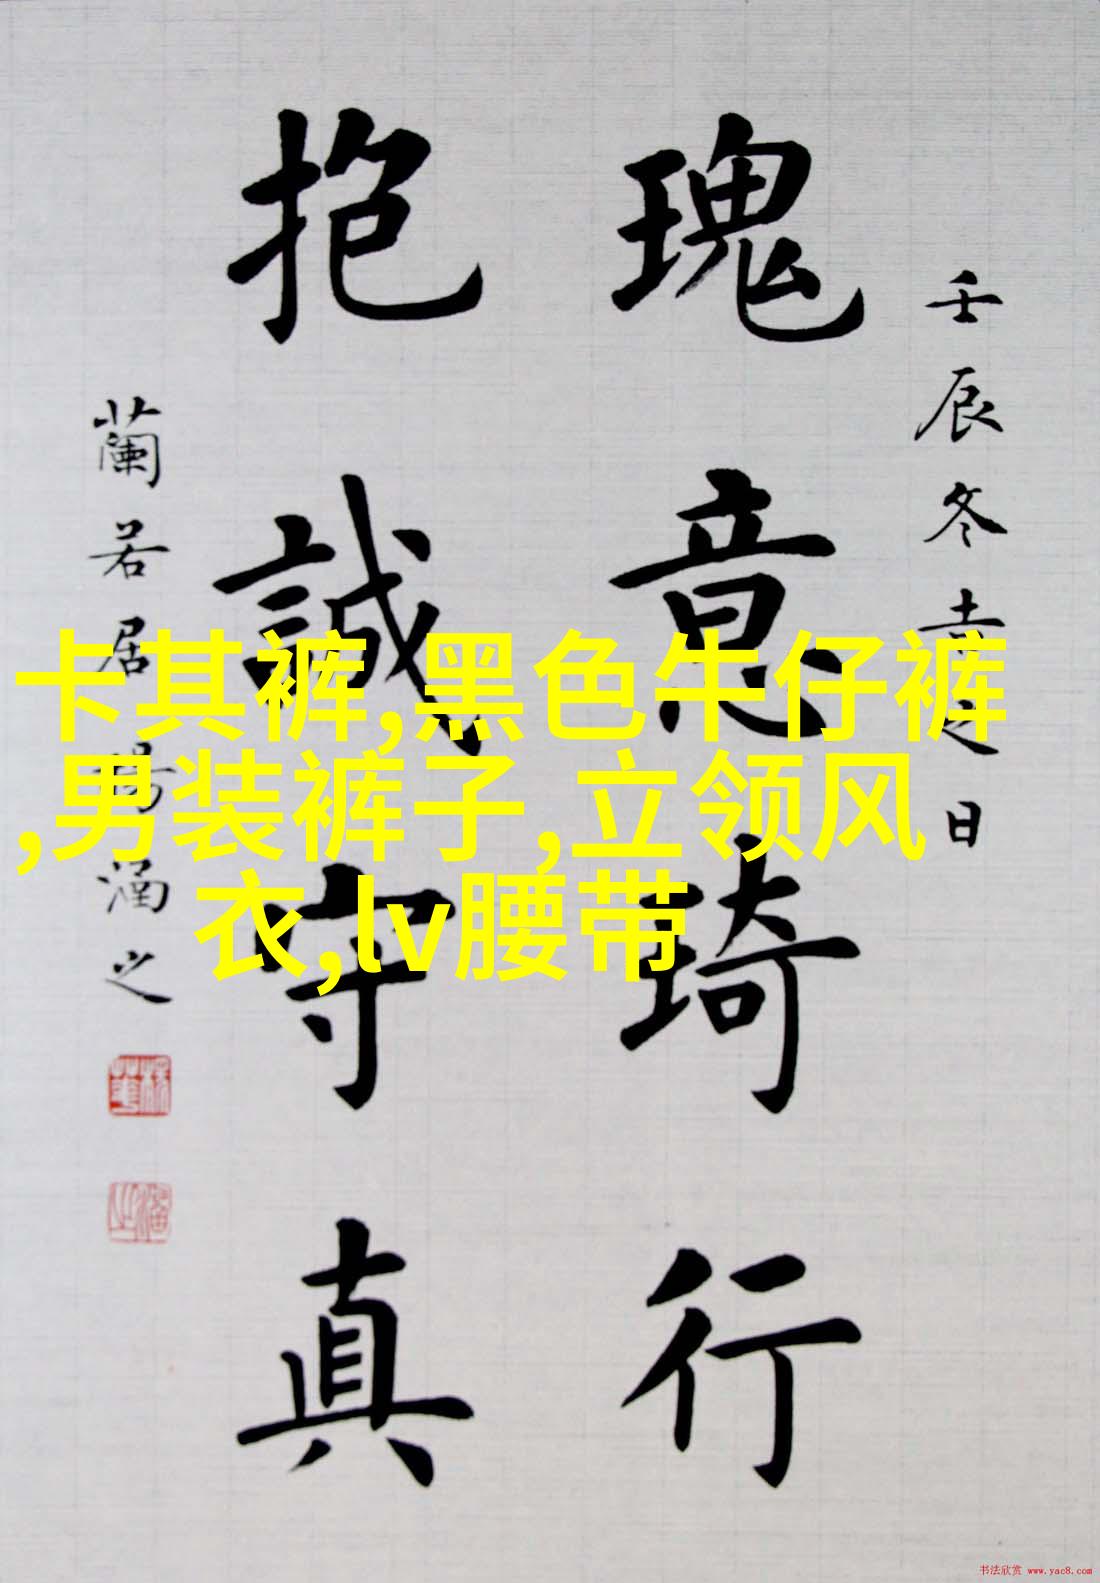 壬辰冬吉之日
瑰意琦行
抱誠守真
蘭若居楊涵之
卡其裤,黑色牛仔裤
,男装裤子,立领风
衣,lv腰带
书法欣赏 www.yac8.com